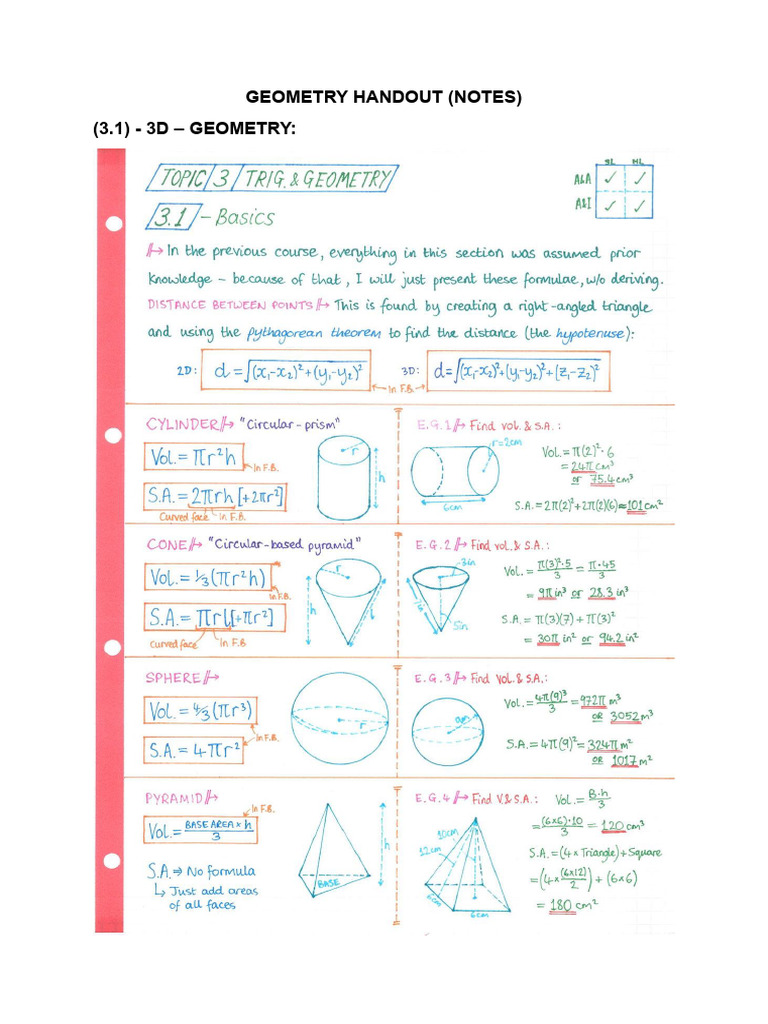 GEOMETRY HANDOUT (NOTES)
(3.1) - 3D – GEOMETRY:
TOPIC 3 TRIG. & GEOMETRY
SL HL
A&A ✓ ✓
A&I ✓ ✓
3.1 - Basics
In the previous course, everything in this section was assumed prior
knowledge - because of that, I will just present these formulae, w/o deriving.
DISTANCE BETWEEN POINTS This is found by creating a right-angled triangle
and using the pythagorean theorem to find the distance (the hypotenuse):
2D: d = √(x₁-x₂)²+(y₁-y₂)² 3D: d = √(x₁-x₂)²+(y₁-y₂)²+(z₁-z₂)²
In F.B.
CYLINDER "Circular-prism"
Vol. = πr²h
In F.B.
S.A. = 2πrh [+2πr²]
Curved face In F.B.
r
h
E.G.1 Find vol. & S.A.:
r=2cm
6cm
Vol. = π(2)²·6
= 24π cm³
or 75.4 cm³
S.A. = 2π(2)²+2π(2)(6) ≈ 101 cm²
CONE "Circular-based pyramid"
Vol. = 1/3(πr²h)
In F.B.
S.A. = πrl [+πr²]
Curved face In F.B.
r
h
l
E.G.2 Find vol. & S.A.:
3in
5in
Vol. = π(3)²·5/3 = π·45/3
= 9π in³ or 28.3 in³
S.A. = π(3)(7) + π(3)²
= 30π in² or 94.2 in²
SPHERE
Vol. = 4/3(πr³)
In F.B.
S.A. = 4πr²
r
E.G.3 Find Vol. & S.A.:
9m
Vol. = 4π(9)³/3 = 972π m³
OR 3052 m³
S.A. = 4π(9)² = 324π m²
OR 1017 m²
PYRAMID
In F.B.
Vol. = BASE AREA × h/3
S.A. ⇒ No formula
↳ Just add areas
of all faces
BASE
h
E.G.4 Find V. & S.A.:
10cm
12cm
6cm
6cm
Vol. = B·h/3
= (6×6)·10/3 = 120 cm³
S.A. = (4 × Triangle) + Square
= (4 × (6×12)/2) + (6×6)
= 180 cm²